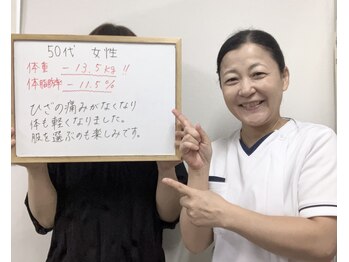 50代 女性
体重 -13.5kg!!
体脂肪率 -11.5%
ひざの痛みがなくなり
体も軽くなりました。
服を選ぶのも楽しみです。